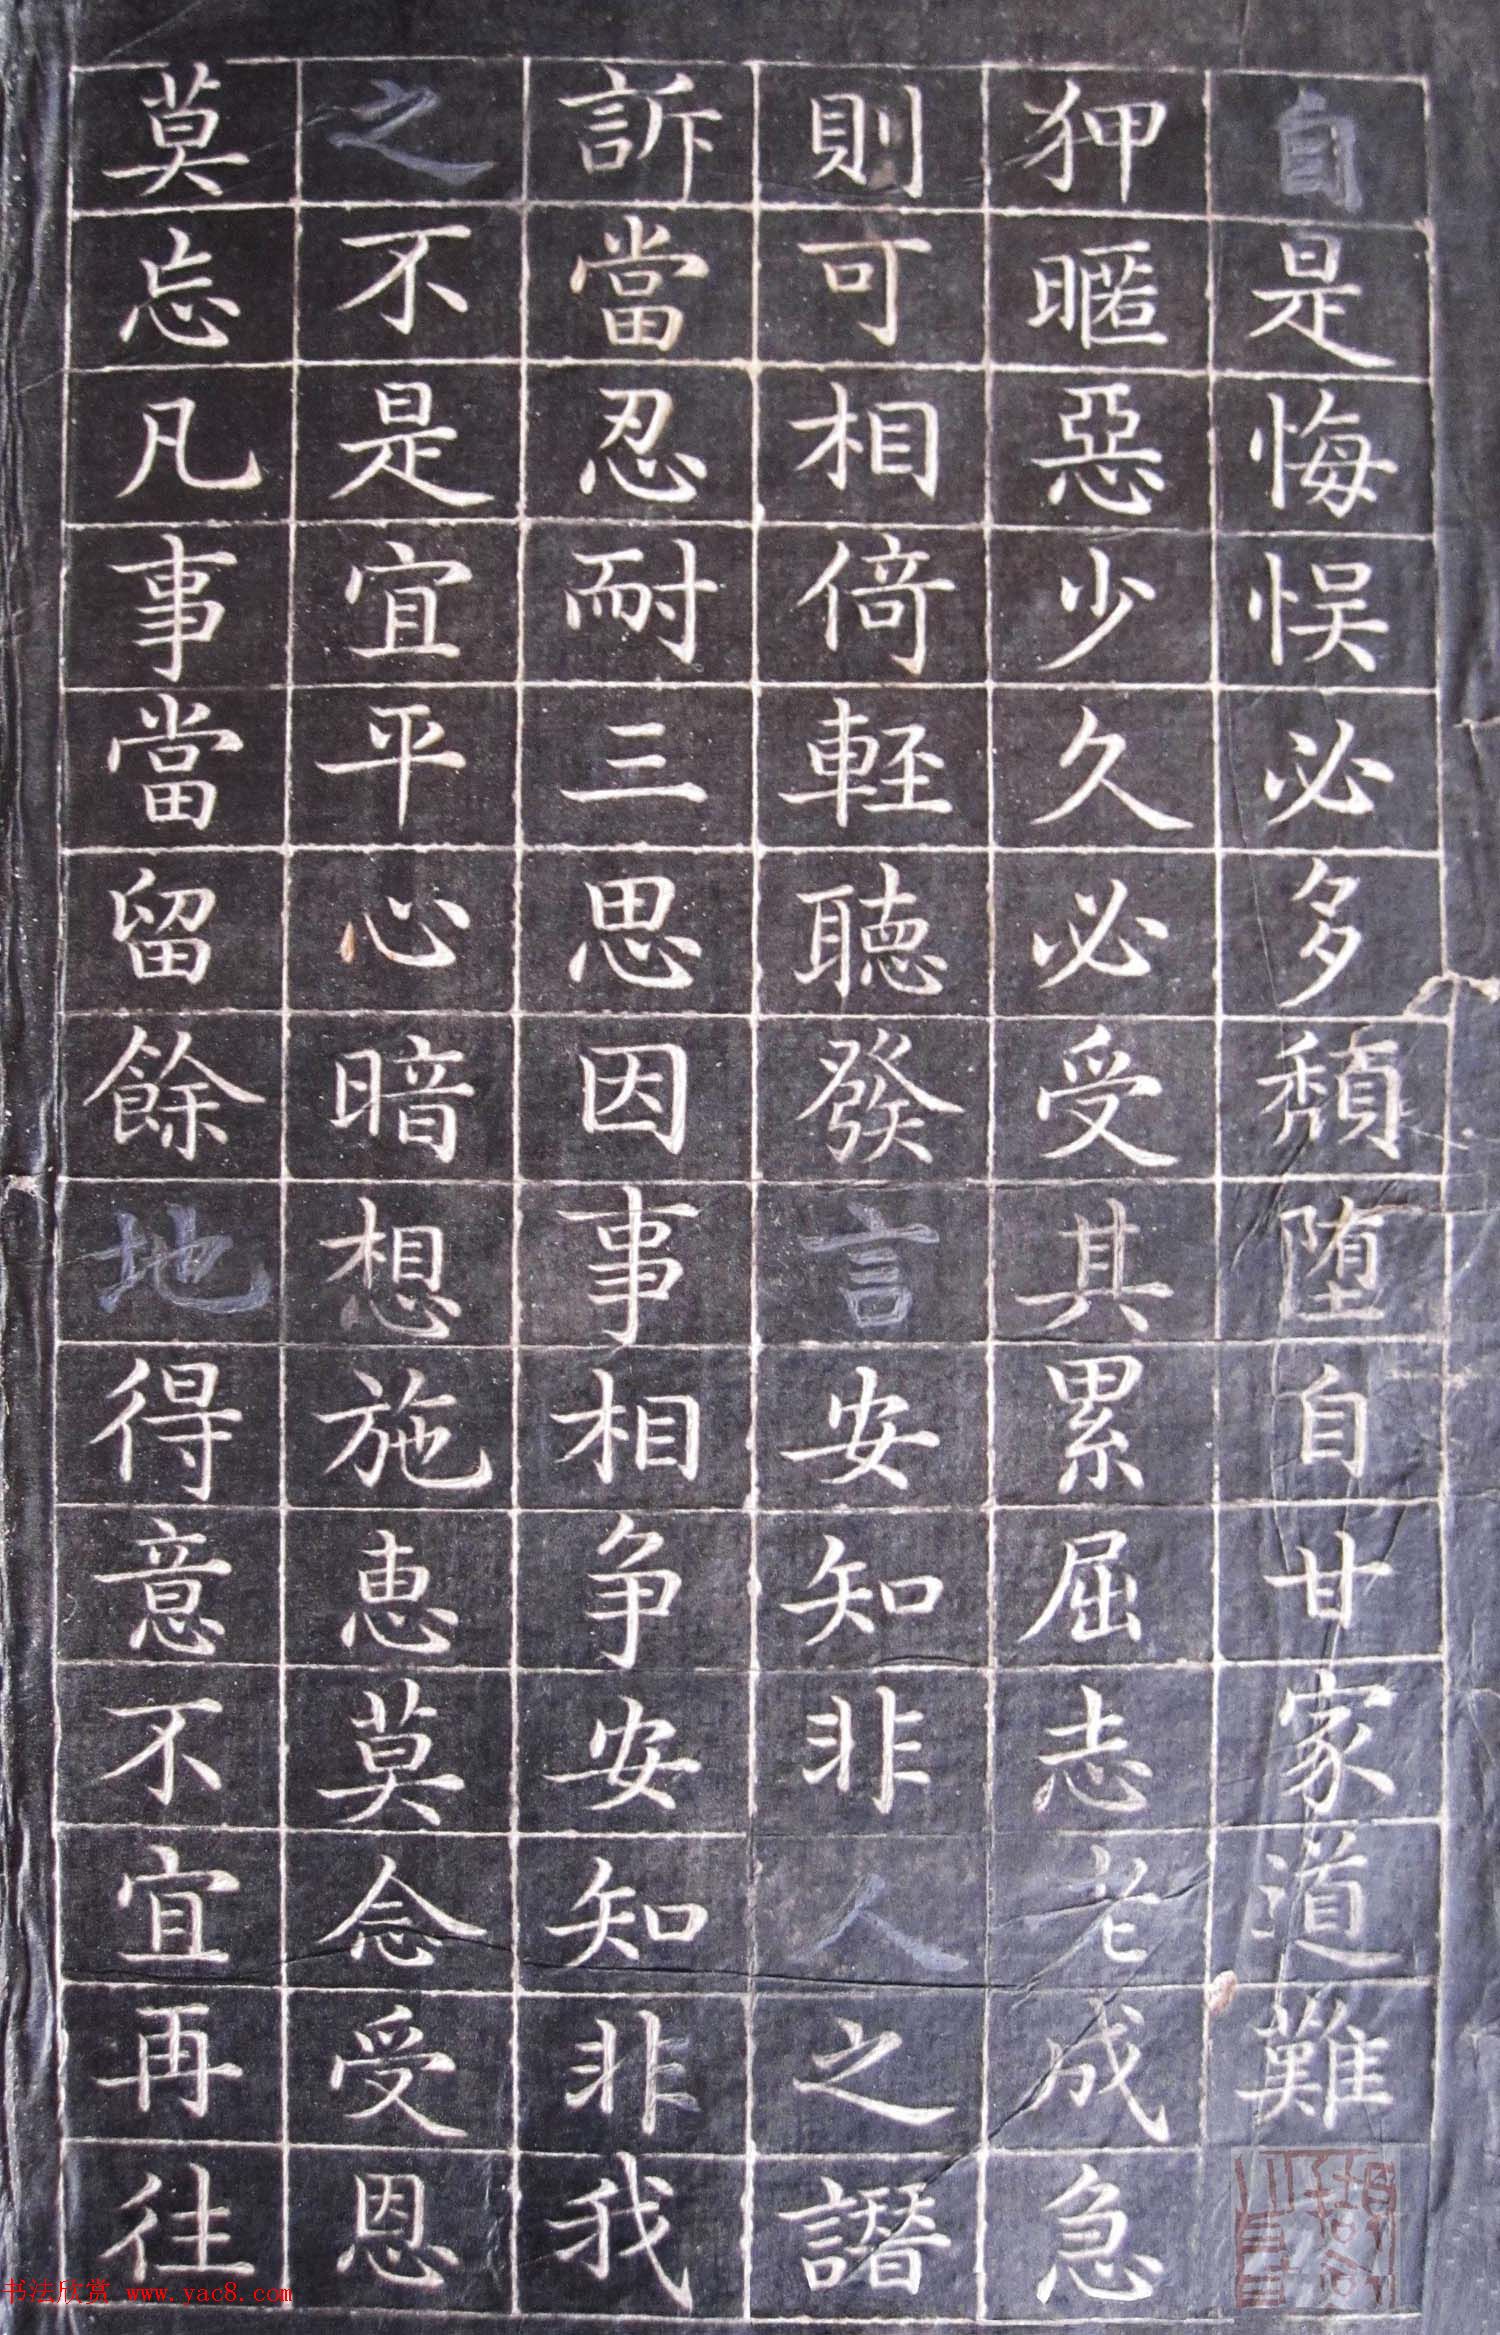 自是悔悮必多頹堕自甘家道難
狎暱惡少久必受其累屈志老成急
則可相倚輕聽發言安知非人之譖
訴當忍耐三思因事相争安知非我
之不是宜平心暗想施恵莫念受恩
莫忘凡事當留餘地得意不宜再往
书法欣赏 www.yac8.com